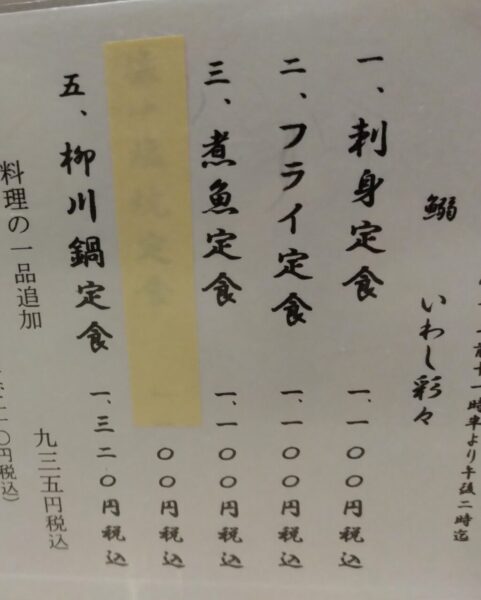 前十一時半より午後二時迄
鰯 いわし彩々
一、刺身定食 一、一〇〇円税込
二、フライ定食 一、一〇〇円税込
三、煮魚定食 一、一〇〇円税込
塩焼定食 〇〇円税込
五、柳川鍋定食 一、三二〇円税込
料理の一品追加 九三五円税込
一〇円税込)